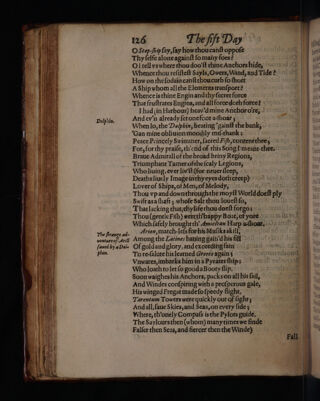 126 The fift Day
O Stop-ship say, say how thou canst oppose
Thy selfe alone against so many foes?
O tell vs where thou doo'st thine Anchors hide,
Whence thou resistest Sayls, Owers, Wind, and Tide?
How on the sodain canst thou curb so short
A Ship whom all the Elements transport?
Whence is thine Engin and thy secret force
That frustrates Engins, and all force doth force?
I had (in Harbour) heav'd mine Anchor o're,
And ev'n already set one foot a-shoar;
Dolphin.
When lo, the Dolphin, beating 'gainst the bank,
'Gan mine obliuion moodily mis-thank:
Peace Princely Swimmer, sacred Fish, content thee;
For, for thy praise, th'end of this Song I meant thee.
Braue Admirall of the broad briny Regions,
Triumphant Tamer of the scaly Legions,
Who liuing, ever liv'st (for never sleep,
Deaths liuely Image in thy eyes doth creep)
Lover of Ships, of Men, of Melody,
Thou vp and down through the moyst World doest ply
Swift as a shaft; whose Salt thou louest so,
That lacking that, thy life thou doest forgo:
Thou (gentle Fish) wert th'happy Boat, of yore
Which safely brought th' Amiclean Harp a-shoar.
The strange adventure of Arion saued by a Dolphin.
Arion, match-less for his Musiks skill,
Among the Latines hauing gain'd his fill
Of gold and glory, and exceeding fain
To re-salute his learned Greece again;
Vnwares, imbarks him in a Pyrates ship:
Who loath to let so good a Booty slip,
Soon waighes his Anchors, packs on all his sail,
And Windes conspiring with a prosperous gale,
His winged Fregat made so speedy flight,
Tarentum Towers were quickly out of sight;
And all, saue Skies, and Seas, on every side;
Where, th'onely Compass is the Pylots guide.
The Saylours then (whom) many times we finde
Falser then Seas, and fiercer then the Winde)
Fall